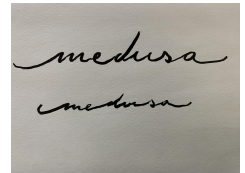 medusa
medusa